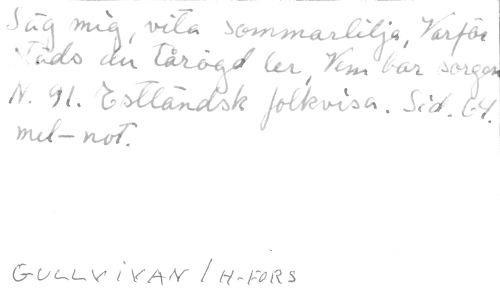 Säg mig, vita sommarlilja, Varför
städs du tårögd ler, Vem bar sorgen
N. 91. Estländsk folkvisa. Sid. 64.
mel-not.
GULLVIVAN / H-FORS